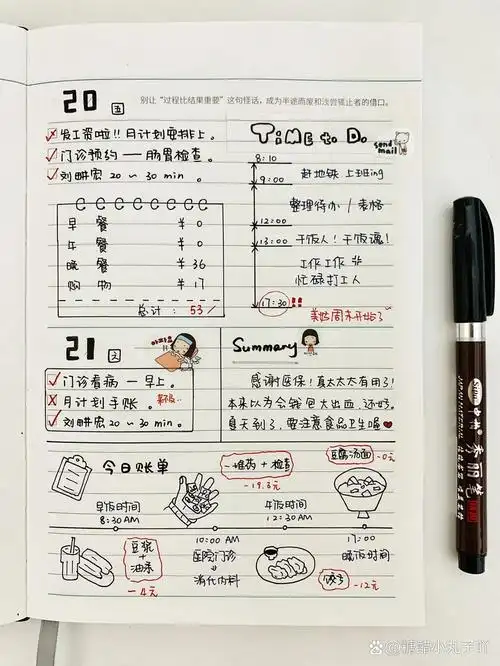 别让“过程比结果重要”这句怪话，成为半途而废和浅尝辄止者的借口。
20 五
发工资啦!! 月计划要排上。
门诊预约 — 肠胃检查。
刘畊宏 20 ~ 30 min 。
早 餐 ¥ 0
午 餐 ¥ 0
晚 餐 ¥ 36
购 物 ¥ 17
总计： 53/
TiME to Do
send mail
8:10
赶地铁 上班ing
9:00
整理待办 / 表格
12:00
干饭人! 干饭魂!
13:00
工作工作
忙碌打工人
17:30 !!
美好周末开始了
21 六
门诊看病 — 早上。
月计划手账 。
刘畊宏 20 ~ 30 min 。
Summary
感谢医保! 真太太太有用了!
本来以为会钱包大出血, 还好。
夏天到了, 要注意食品卫生喔
今日账单
早饭时间
8:30 AM
豆浆
+
油条
-4元
一堆药 + 检查
-19.3元
10:00 AM
医院门诊
消化内科
午饭时间
12:30 AM
饺子
-12元
豆腐汤面
-0元
17:00
晚饭时间
中柏
秀丽笔
JAPAN MATERIAL
@糖醋小丸子吖